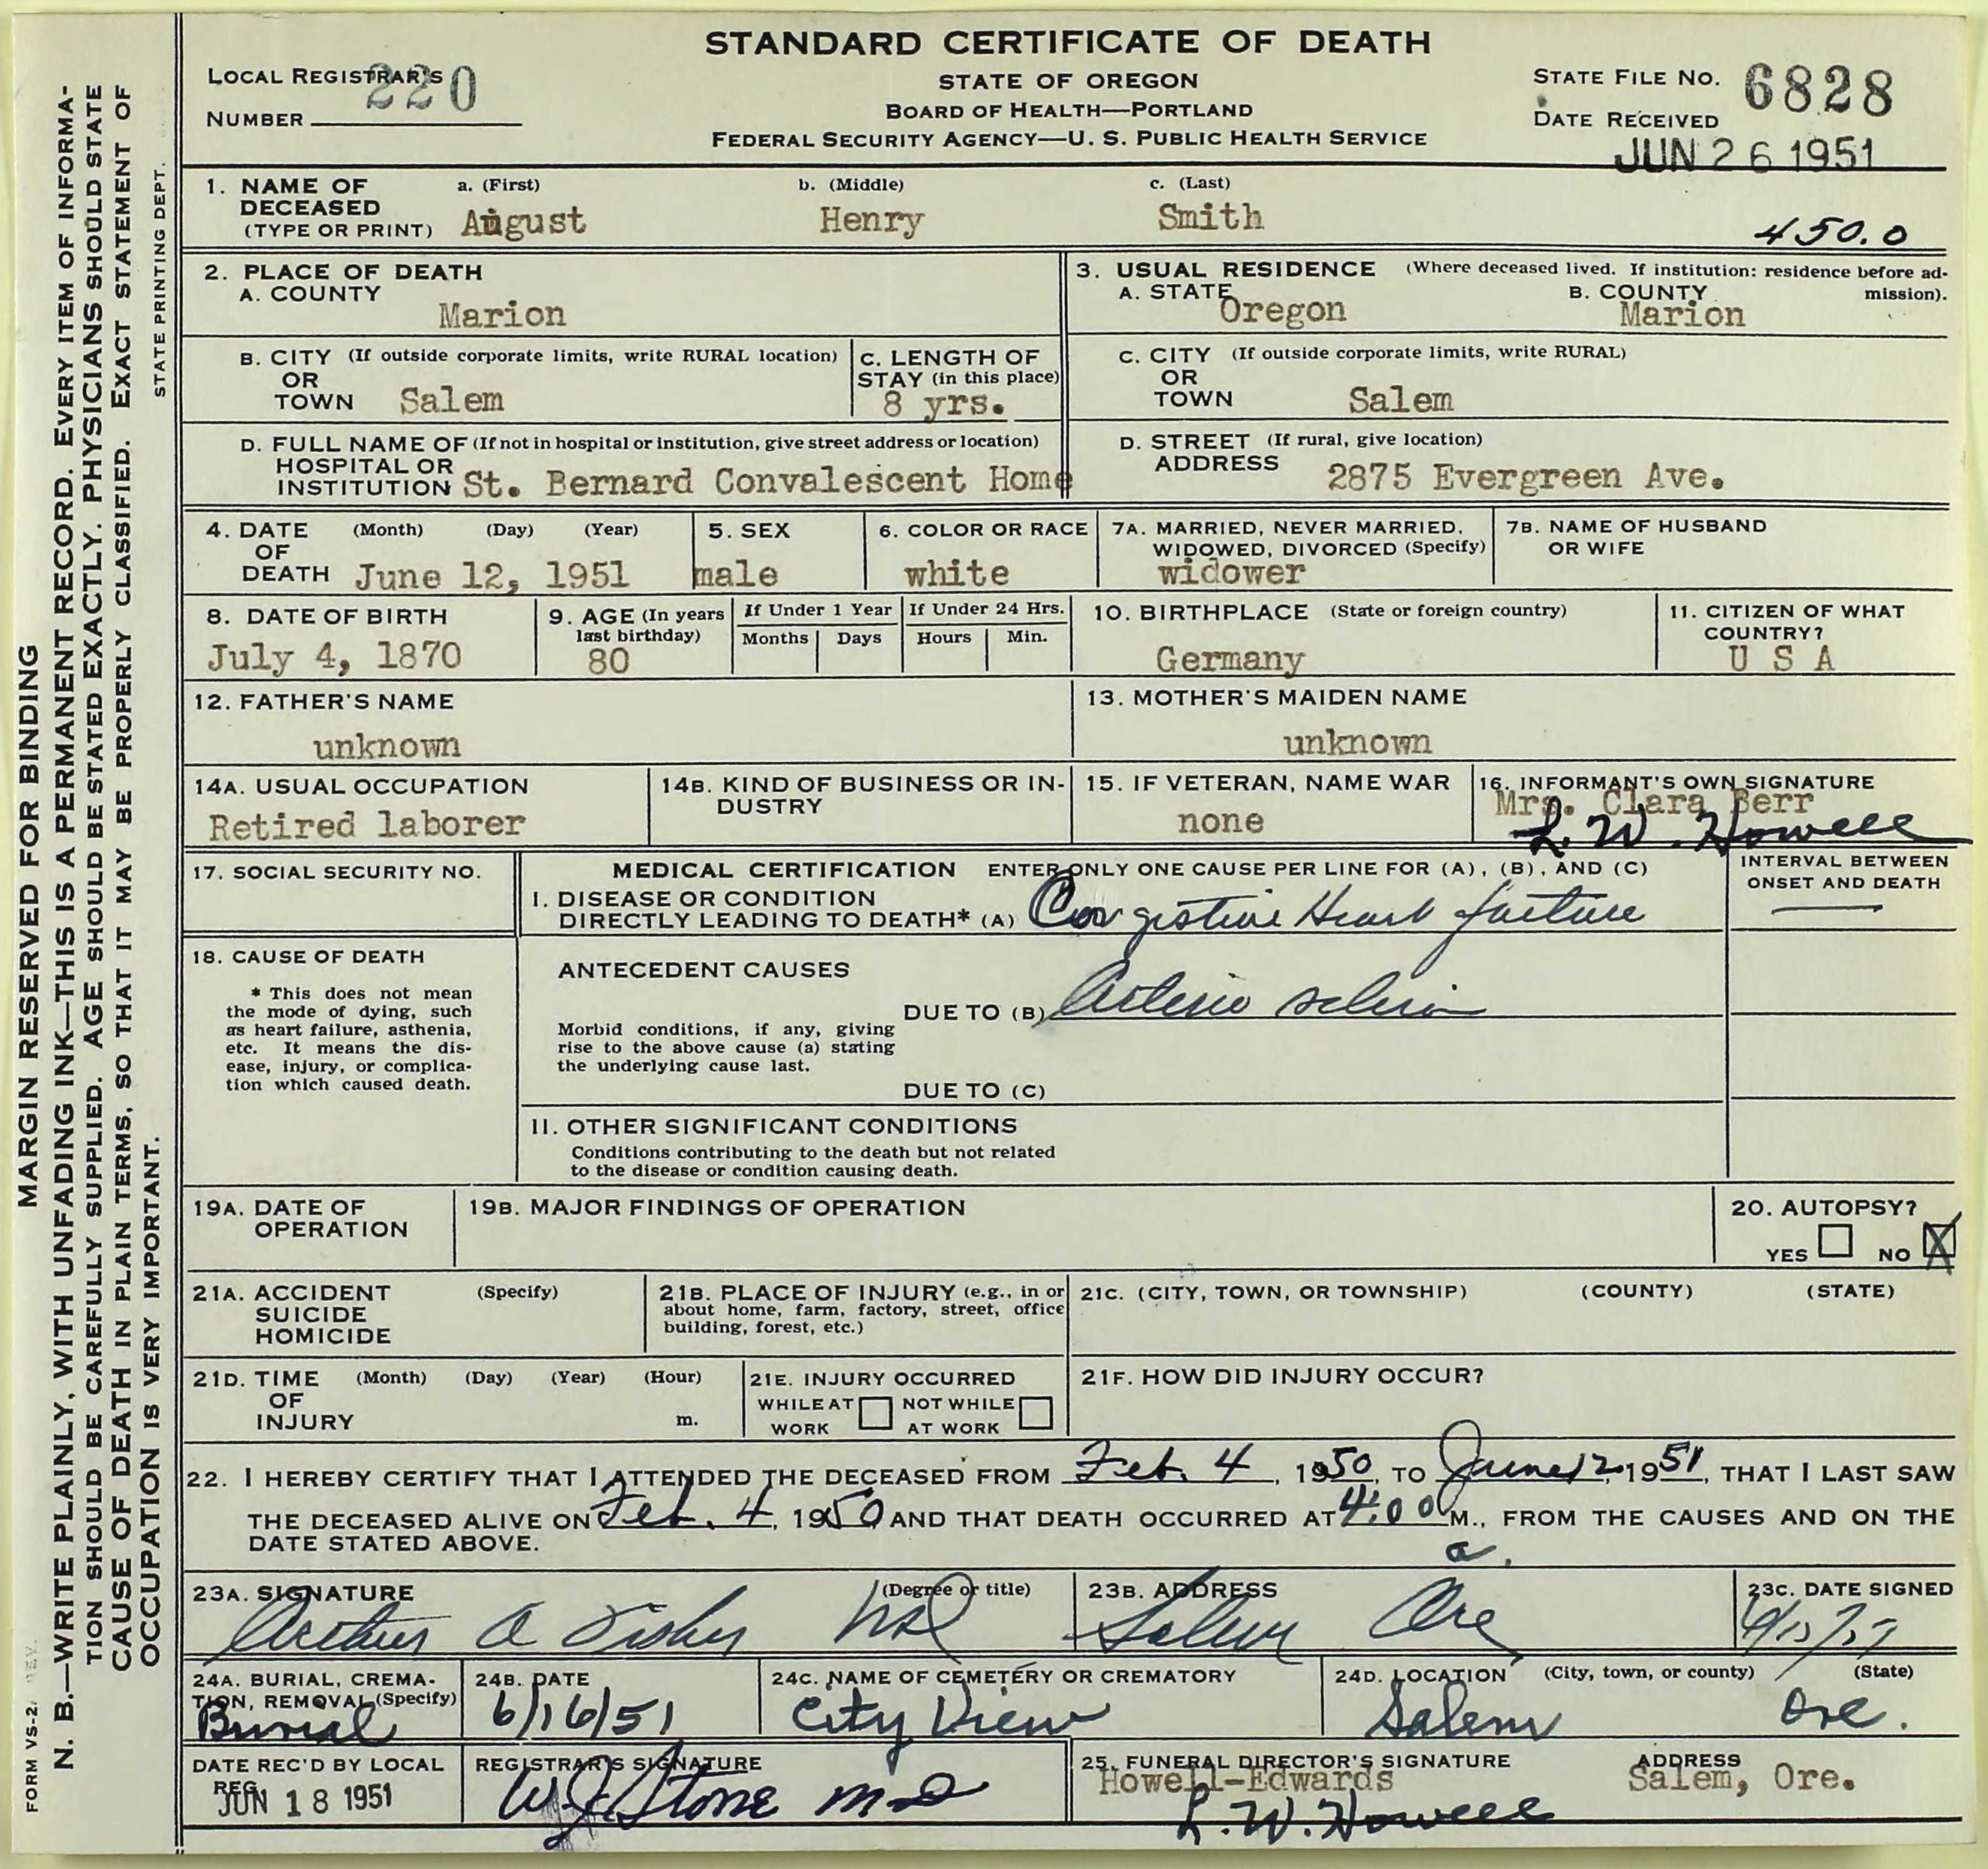 STANDARD CERTIFICATE OF DEATH
STATE OF OREGON
BOARD OF HEALTH—PORTLAND
FEDERAL SECURITY AGENCY—U. S. PUBLIC HEALTH SERVICE
LOCAL REGISTRAR'S
NUMBER 220
STATE FILE NO. 6828
DATE RECEIVED
JUN 26 1951
1. NAME OF DECEASED (TYPE OR PRINT)
a. (First) August
b. (Middle) Henry
c. (Last) Smith
450.0
2. PLACE OF DEATH
A. COUNTY
Marion
3. USUAL RESIDENCE (Where deceased lived. If institution: residence before admission).
A. STATE Oregon
B. COUNTY Marion
B. CITY (If outside corporate limits, write RURAL location)
OR
TOWN Salem
C. LENGTH OF
STAY (in this place)
8 yrs.
C. CITY (If outside corporate limits, write RURAL)
OR
TOWN Salem
D. FULL NAME OF (If not in hospital or institution, give street address or location)
HOSPITAL OR
INSTITUTION St. Bernard Convalescent Home
D. STREET (If rural, give location)
ADDRESS 2875 Evergreen Ave.
4. DATE (Month) (Day) (Year)
OF
DEATH June 12, 1951
5. SEX
male
6. COLOR OR RACE
white
7A. MARRIED, NEVER MARRIED,
WIDOWED, DIVORCED (Specify)
widower
7B. NAME OF HUSBAND
OR WIFE
8. DATE OF BIRTH
July 4, 1870
9. AGE (In years
last birthday)
80
If Under 1 Year
Months Days
If Under 24 Hrs.
Hours Min.
10. BIRTHPLACE (State or foreign country)
Germany
11. CITIZEN OF WHAT
COUNTRY?
U S A
12. FATHER'S NAME
unknown
13. MOTHER'S MAIDEN NAME
unknown
14A. USUAL OCCUPATION
Retired laborer
14B. KIND OF BUSINESS OR IN-
DUSTRY
15. IF VETERAN, NAME WAR
none
16. INFORMANT'S OWN SIGNATURE
Mrs. Clara Berr
L. W. Howell
17. SOCIAL SECURITY NO.
MEDICAL CERTIFICATION ENTER ONLY ONE CAUSE PER LINE FOR (A), (B), AND (C)
INTERVAL BETWEEN
ONSET AND DEATH
I. DISEASE OR CONDITION
DIRECTLY LEADING TO DEATH* (A) Congestive Heart failure
18. CAUSE OF DEATH
* This does not mean
the mode of dying, such
as heart failure, asthenia,
etc. It means the dis-
ease, injury, or complica-
tion which caused death.
ANTECEDENT CAUSES
DUE TO (B) Arterio
Morbid conditions, if any, giving
rise to the above cause (a) stating
the underlying cause last.
DUE TO (C)
II. OTHER SIGNIFICANT CONDITIONS
Conditions contributing to the death but not related
to the disease or condition causing death.
19A. DATE OF
OPERATION
19B. MAJOR FINDINGS OF OPERATION
20. AUTOPSY?
YES NO X
21A. ACCIDENT (Specify)
SUICIDE
HOMICIDE
21B. PLACE OF INJURY (e.g., in or
about home, farm, factory, street, office
building, forest, etc.)
21C. (CITY, TOWN, OR TOWNSHIP) (COUNTY) (STATE)
21D. TIME (Month) (Day) (Year) (Hour)
OF
INJURY m.
21E. INJURY OCCURRED
WHILE AT WORK NOT WHILE AT WORK
21F. HOW DID INJURY OCCUR?
22. I HEREBY CERTIFY THAT I ATTENDED THE DECEASED FROM Feb. 4, 1950, TO June 12, 1951, THAT I LAST SAW
THE DECEASED ALIVE ON Feb. 4, 1950 AND THAT DEATH OCCURRED AT 4:00 a. M., FROM THE CAUSES AND ON THE
DATE STATED ABOVE.
23A. SIGNATURE (Degree or title)
Arthur A Fisher MD
23B. ADDRESS
Salem Ore
23C. DATE SIGNED
24A. BURIAL, CREMA-
TION, REMOVAL (Specify)
Burial
24B. DATE
6/16/51
24C. NAME OF CEMETERY OR CREMATORY
City View
24D. LOCATION (City, town, or county) (State)
Salem Ore.
DATE REC'D BY LOCAL
REG.
JUN 18 1951
REGISTRAR'S SIGNATURE
W J Stone MD
25. FUNERAL DIRECTOR'S SIGNATURE ADDRESS
Howell-Edwards Salem, Ore.
L. W. Howell
MARGIN RESERVED FOR BINDING
N. B.—WRITE PLAINLY, WITH UNFADING INK—THIS IS A PERMANENT RECORD. EVERY ITEM OF INFORMA-
TION SHOULD BE CAREFULLY SUPPLIED. AGE SHOULD BE STATED EXACTLY. PHYSICIANS SHOULD STATE
CAUSE OF DEATH IN PLAIN TERMS, SO THAT IT MAY BE PROPERLY CLASSIFIED. EXACT STATEMENT OF
OCCUPATION IS VERY IMPORTANT.
STATE PRINTING DEPT.
FORM VS-2